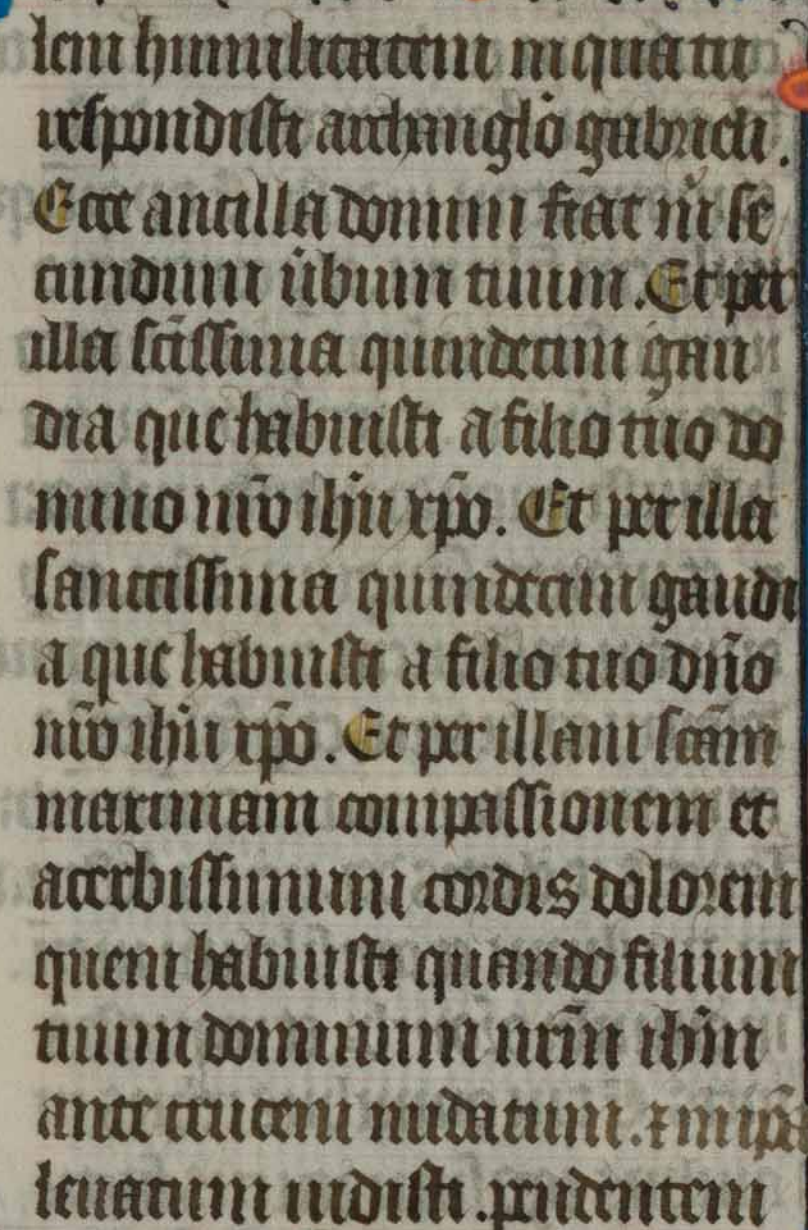 lem humilitatem in qua tu
respondisti archanglo gabrieli.
Ecce ancilla domini fiat m̄ se
cundum ūbum tuum. Et per
illa sc̄issima quindecim gau
dia que habuisti a filio tuo do
mino nr̄o ihū xp̄o. Et per illa
sanctissima quindecim gaudi
a que habuisti a filio tuo dn̄o
nr̄o ihū xp̄o. Et per illam sc̄am
maximam compassionem et
acerbissimum cordis dolorem
quem habuisti quando filium
tuum dominum nrm̄ ihm̄
ante crucem nudatum. ⁊ in ip̄a
leuatum uidisti. pendentem